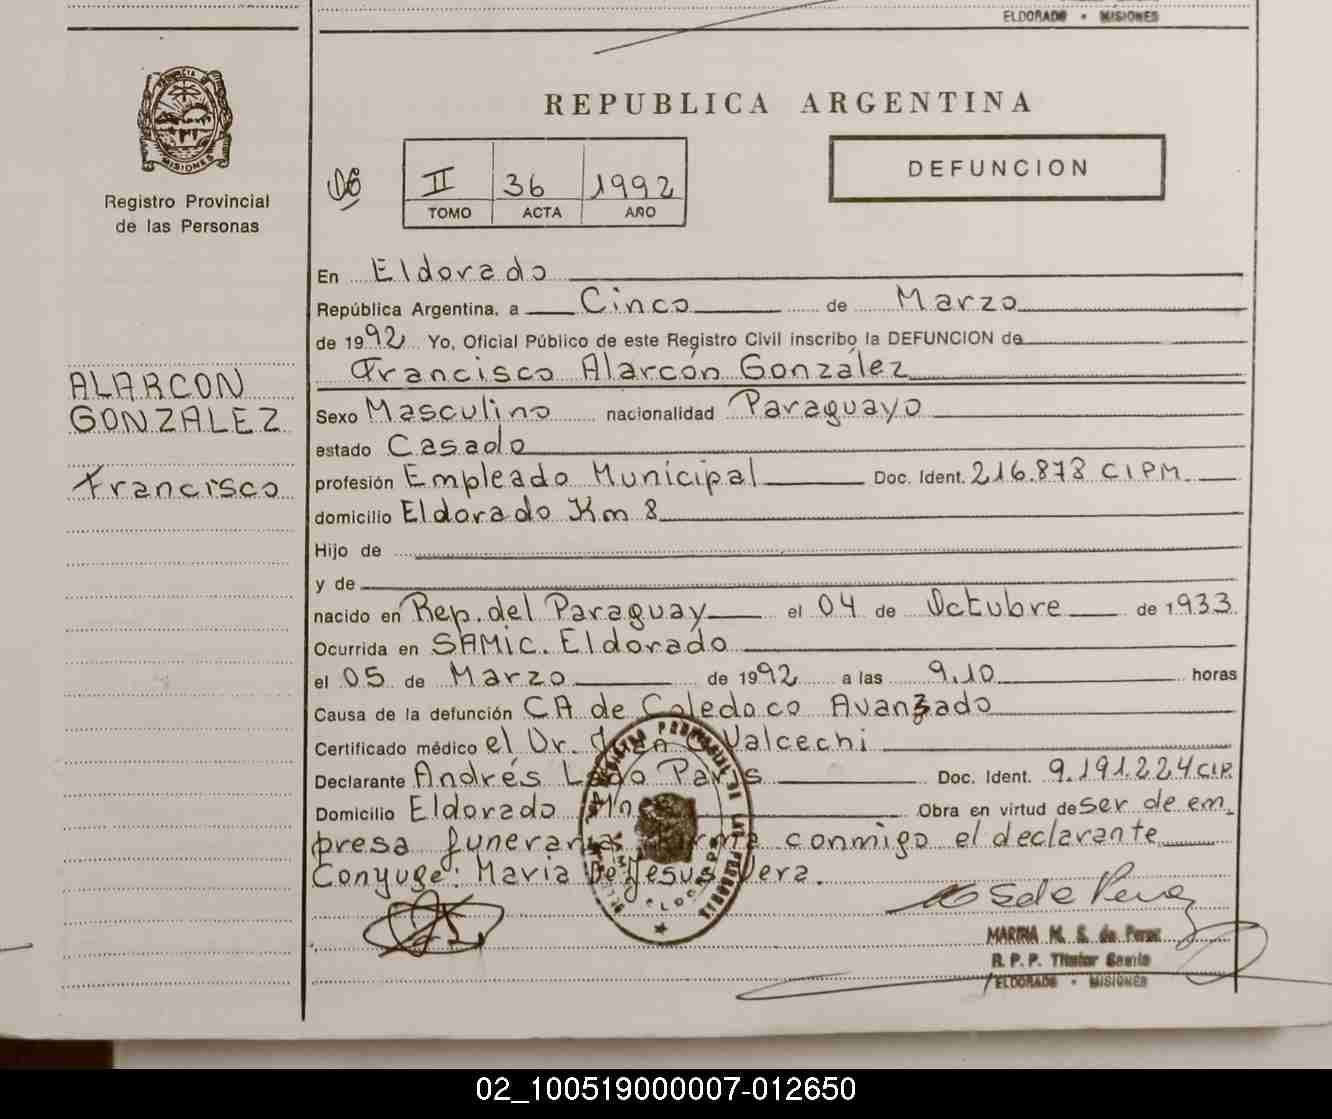 ELDORADO - MISIONES
PROVINCIA D
MISIONES
Registro Provincial
de las Personas
REPUBLICA ARGENTINA
DEFUNCION
06
II 36 1992
TOMO ACTA AÑO
ALARCON
GONZALEZ
Francisco
En Eldorado
República Argentina, a Cinco de Marzo
de 1992 Yo, Oficial Público de este Registro Civil inscribo la DEFUNCION de
Francisco Alarcón González
Sexo Masculino nacionalidad Paraguayo
estado Casado
profesión Empleado Municipal Doc. Ident. 216.878 CIPM
domicilio Eldorado Km 8
Hijo de
y de
nacido en Rep. del Paraguay el 04 de Octubre de 1933
Ocurrida en SAMIC. Eldorado
el 05 de Marzo de 1992 a las 9.10 horas
Causa de la defunción CA de Coledoco Avanzado
Certificado médico el Dr. Juan Valcechi
Declarante Andrés Doc. Ident. 9.191.224 CIP.
Domicilio Eldorado Mnes Obra en virtud de ser de em_
presa funeraria Firma conmigo el declarante
Conyuge: Maria De Jesus Vera.
MARINA M. S. de Perez
R. P. P. Titular
ELDORADO - MISIONES
02_100519000007-012650